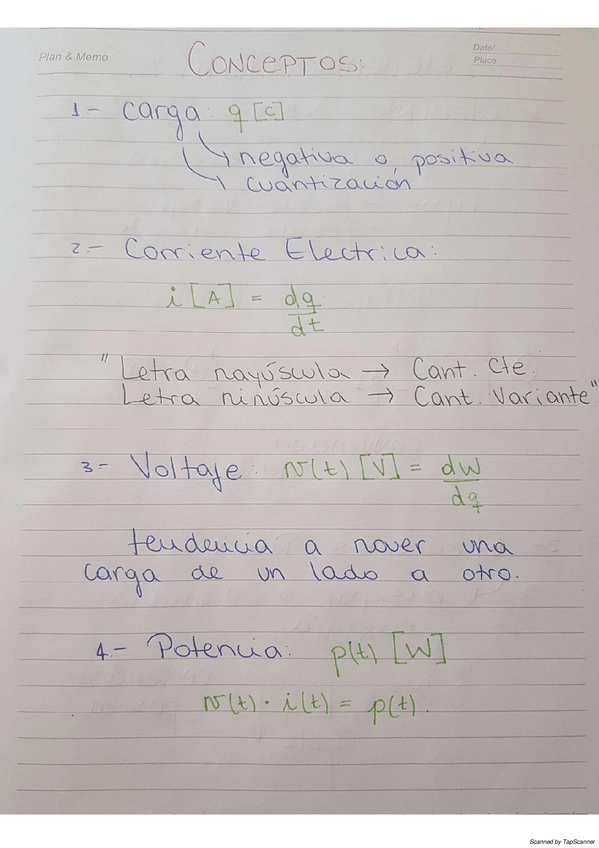 Plan & Memo
Date/
Place
CONCEPTOS:
1- Carga: q [C]
negativa o positiva
cuantización
2- Corriente Electrica:
i [A] = dq/dt
"Letra mayúscula → Cant. Cte.
Letra minúscula → Cant. Variante"
3- Voltaje: v(t) [V] = dW/dq
tendencia a mover una
carga de un lado a otro.
4.- Potencia: p(t) [W]
v(t) · i(t) = p(t).
Scanned by TapScanner